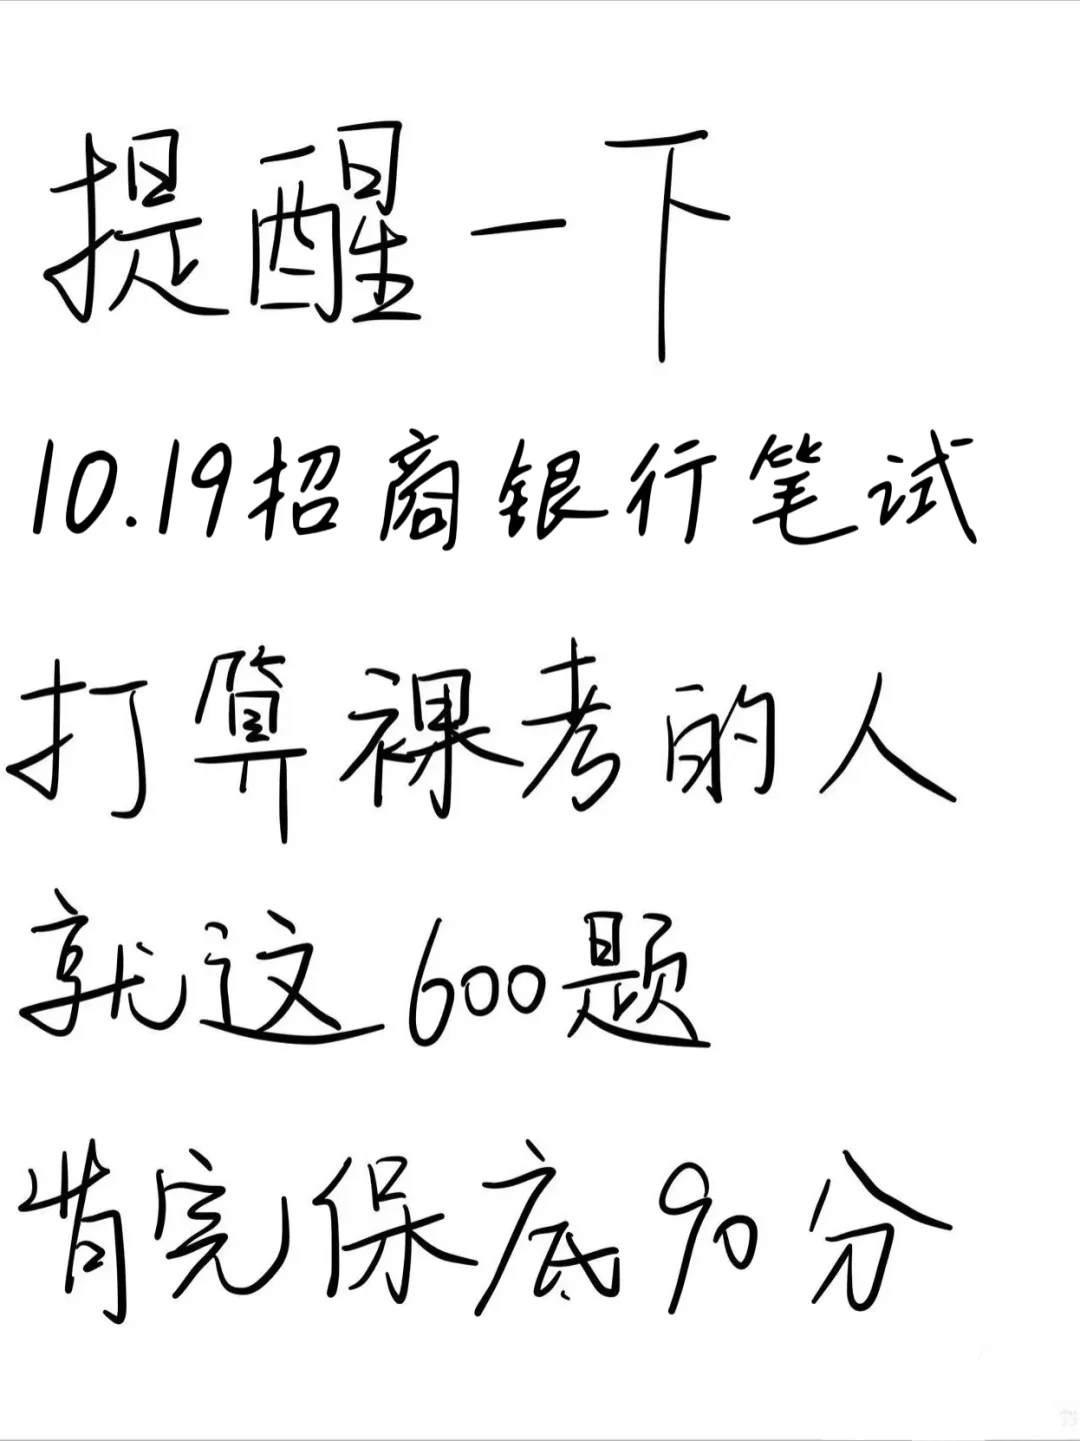 提醒一下
10.19招商银行笔试
打算裸考的人
就这600题
背完保底90分